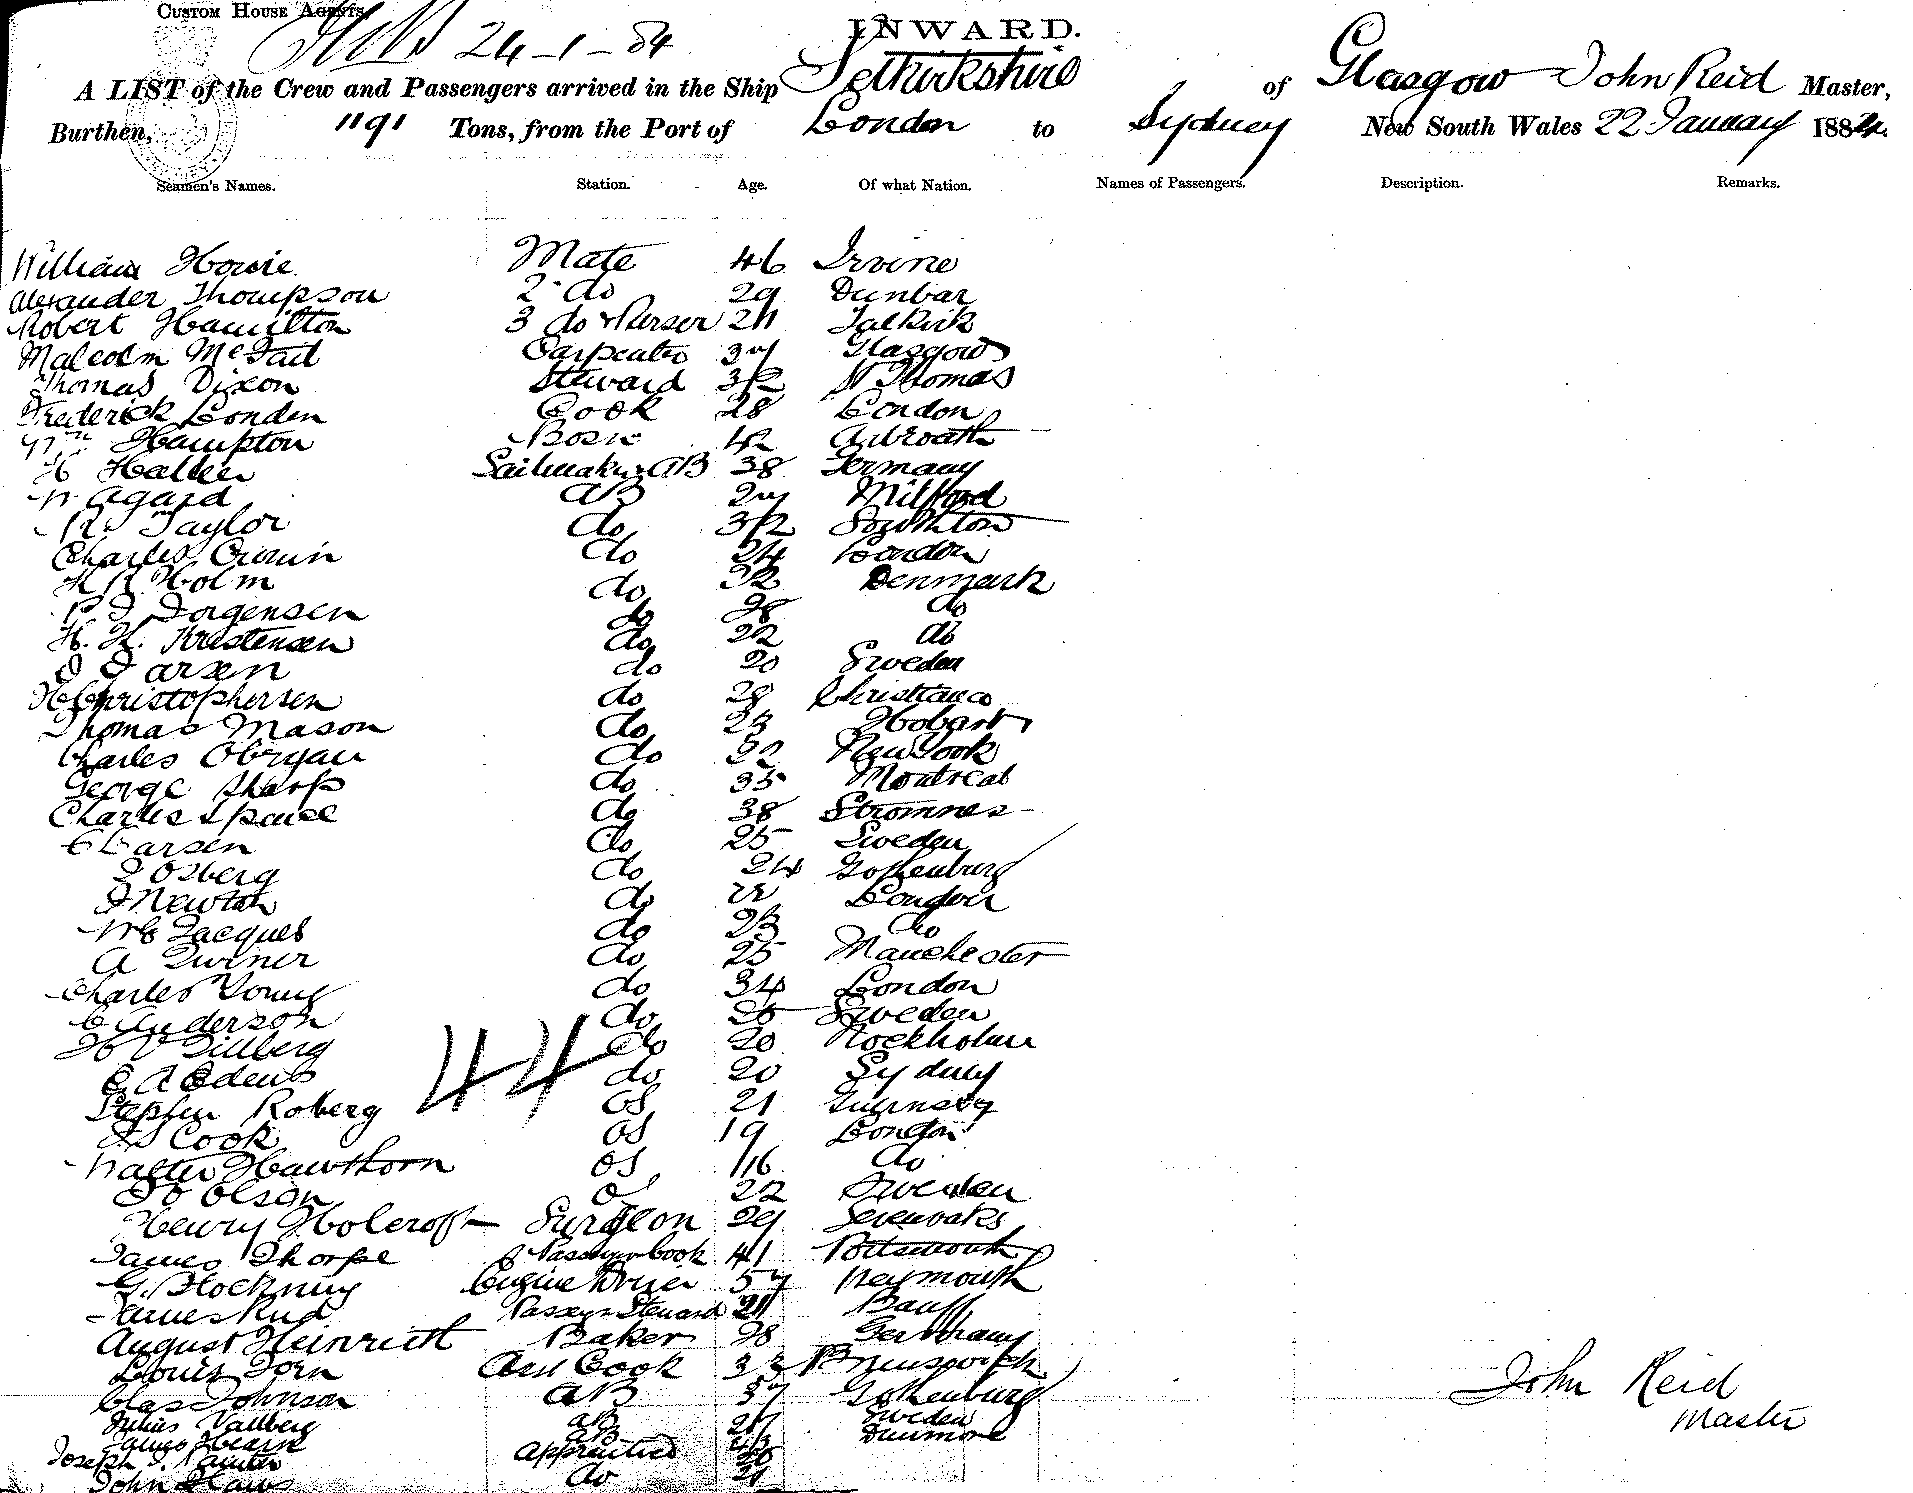 CUSTOM HOUSE AGENTS.
24-1-84
INWARD.
A LIST of the Crew and Passengers arrived in the Ship Selkirkshire of Glasgow John Reid Master,
Burthen, 1191 Tons, from the Port of London to Sydney New South Wales 22 January 1884.
Seamen's Names. Station. Age. Of what Nation. Names of Passengers. Description. Remarks.
William Howie Mate 46 Irvine
Alexander Thompson 2 do 29 Dunbar
Robert Hamilton 3 do & Purser Falkirk
Malcolm McFail Carpenter 37 Glasgow
Thomas Dixon Steward 32 St Thomas
Frederick London Cook 28 London
Wm Hampton Bosn 42 Arbroath
H Sailmaker & AB 38 Germany
W Agard AB 27 Milford
R. Taylor do 32 Southton
Charles do 24 London
H R Holm do 32 Denmark
P J Jorgensen do 28 do
H. H. Kristensen do 22 do
do 20 Sweden
H Christophersen do 28 Christiania
Thomas Mason do 23 Hobart
Charles Obryan do 22 New York
George Sharp do 35 Montreal
Charles Spence do 38 Stromnes
C Larsen do 25 Sweden
Osberg do 24 Gothenburg
J Newton do 22 London
Wm Jacques do 23 do
A Turner do 25 Manchester
Charles Young do 34 London
C Anderson do 26 Sweden
Tillberg do 20 Stockholm
E A Edens do 20 Sydney
44
Stephen Roberg OS 21 Guernsey
Cook OS 19 London
Walter Hawthorn OS 16 do
Olson OS 22 Sweden
Henry Holcroft Surgeon 29 Sevenoaks
James Thorpe Passengr Cook 41 Portsmouth
G. Engine Driver 57 Weymouth
James Reid Passengr Steward 21 Banff
August Heinrich Baker 28 Germany
Louis Asst Cook 33 Brunswick
Clas Johnson AB 37 Gothenburg
John Reid
Julius Vallberg AB 27 Sweden
Master
James Hearn AB Dunmore
Joseph Painter Apprentice
John do 21